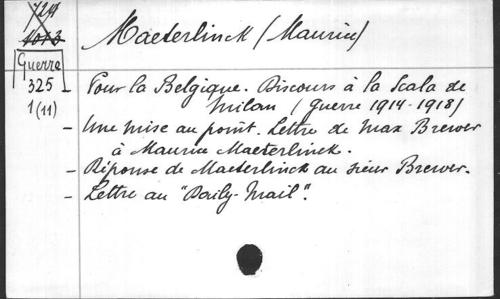 Maeterlinck (Maurice)
1013
Guerre
325
1(11)
- Pour la Belgique. Discours à la Scala de
Milan (guerre 1914-1918)
- Une mise au point. Lettre de Max Brewer
à Maurice Maeterlinck.
- Réponse de Maeterlinck au sieur Brewer.
- Lettre au "Daily-Mail".